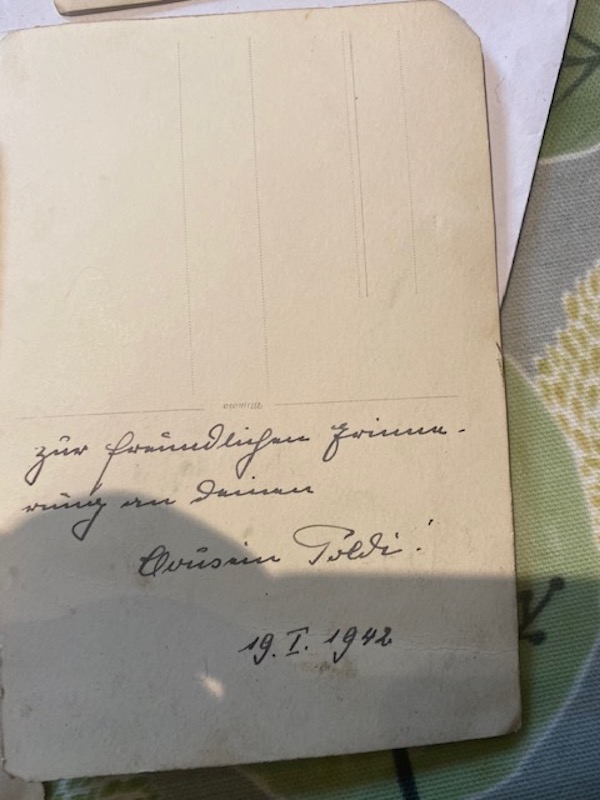 zur freundlichen Erinne-
rung an deinen
Cousin Poldi!
19. I. 1942